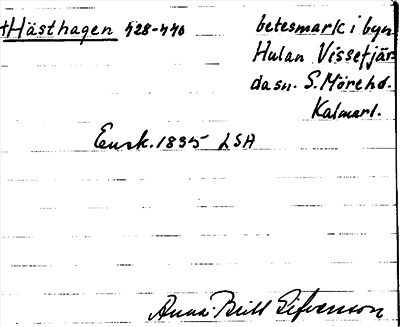 +Hästhagen 428-440 betesmark i byn
Hulan Vissefjär-
dasn. S. Möre hd.
Kalmarl.
Ensk. 1835 LSA
Anna-Britt Sifvensson